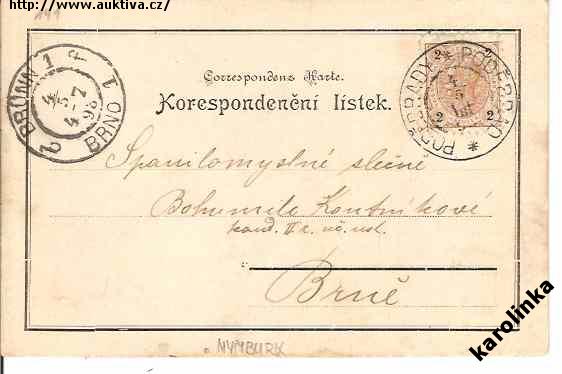 http://www.auktiva.cz/
Correspondenz Karte.
Korespondenční lístek.
BRÜNN 1
BRNO 1
4
5
4-7
98
PODĚBRADY * PODĚBRAD *
2 2
2 2
Spanilomyslné slečně
Bohumile Koutníkové
kand. II r. uč. úst.
Brně
NYMBURK
karolinka